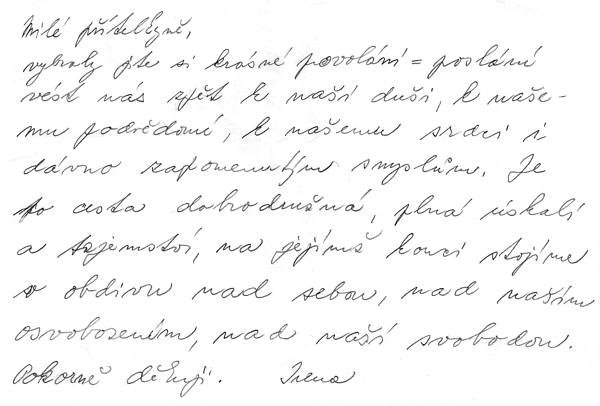 Milé přítelkyně,
vybraly jste si krásné povolání = poslání
vést nás zpět k naší duši, k naše-
mu podvědomí, k našemu srdci i
dávno zapomenutým smyslům. Je
to cesta dobrodružná, plná úskalí
a tajemství, na jejímž konci stojíme
v obdivu nad sebou, nad naším
osvobozením, nad naší svobodou.
Pokorně děkuji. Irena